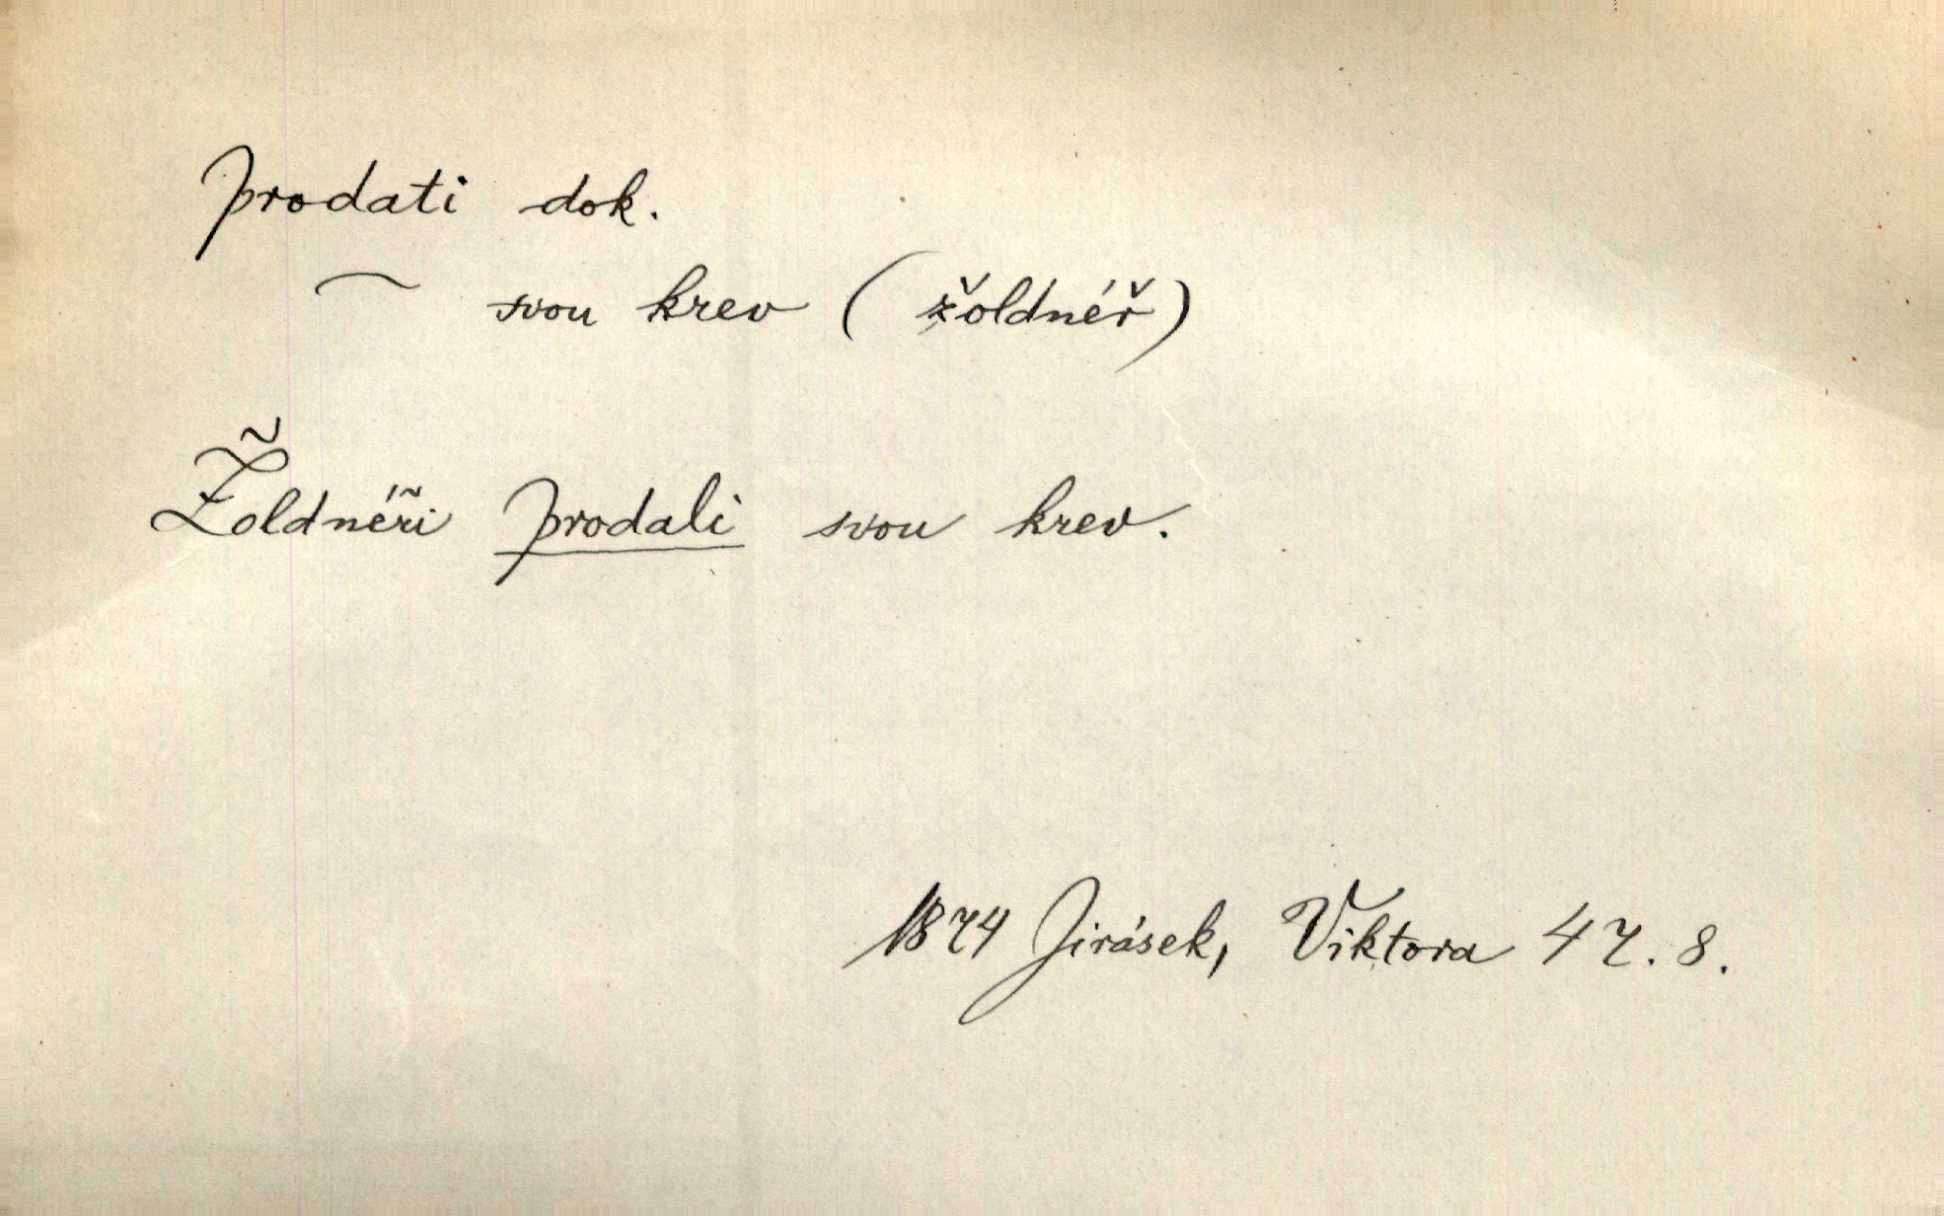 prodati dok.
~ svou krev (žoldnéř)
Žoldnéři prodali svou krev.
1874 Jirásek, Viktora 47. 8.